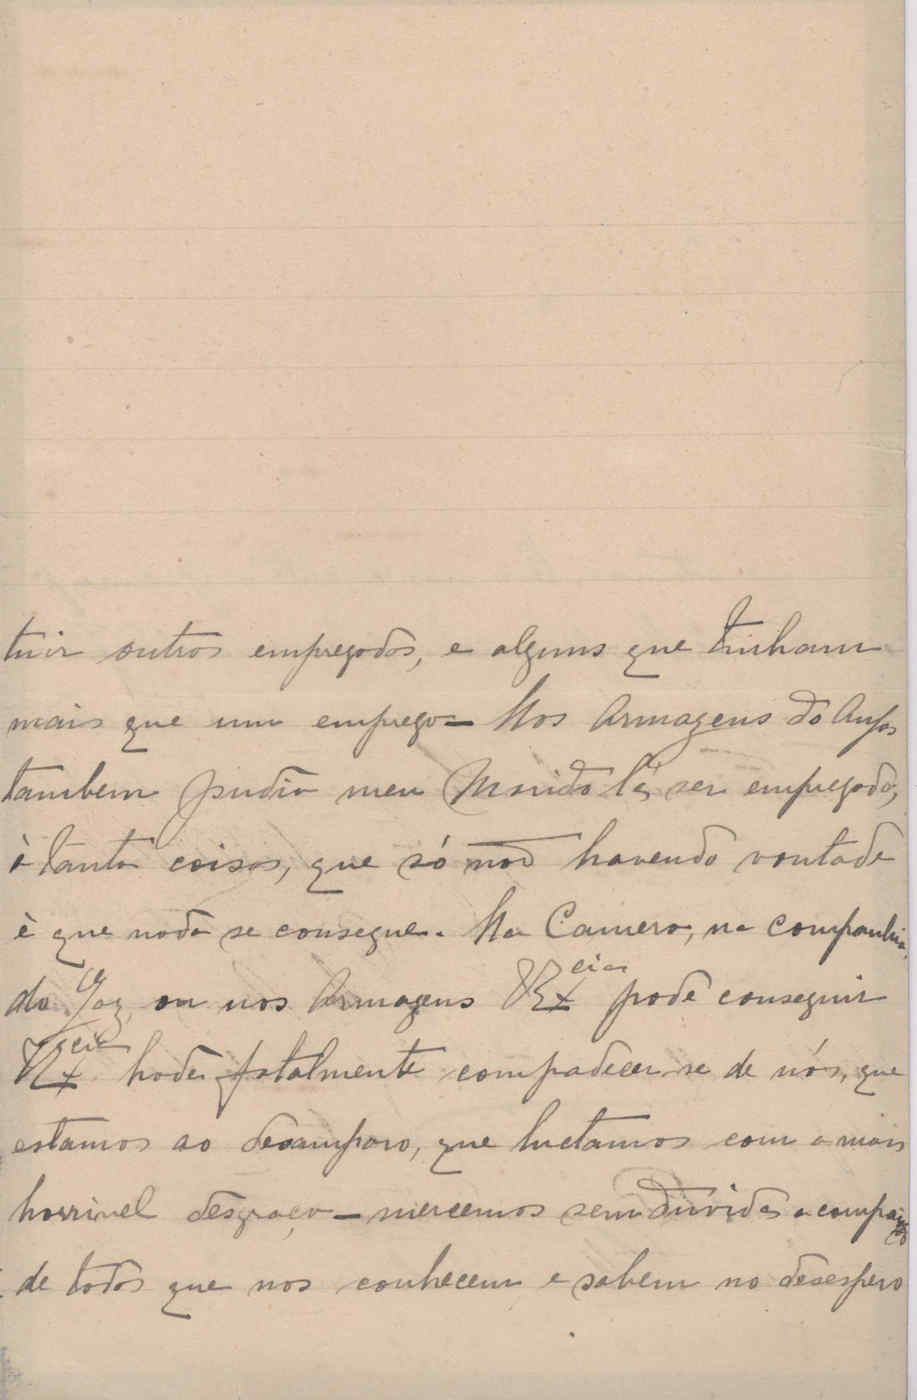 tuir outros empregados, e alguns que tinham
mais que um emprego – Nos Armagens do Anjos
tambem pudia meu Marido lá ser empregado,
è tanta coisa, que só não havendo vontade
è que nada se consegue. Na Camera, na Companhia
do Gaz, ou nos Armagens VEx.cia pode conseguir
VEx.cia hade fatalmente compadecer-se de nós, que
estamos ao desamparo, que luctamos com a mais
horrivel desgraça – mercemos sem duvida a compaixão
de todos que nos conhecem e sabem no desespero